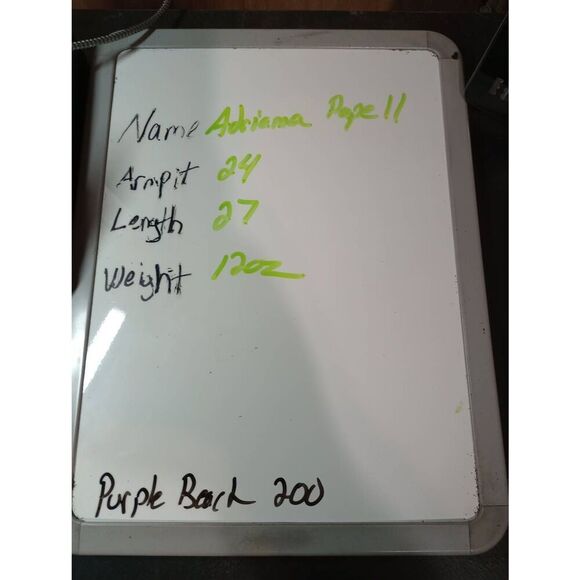 Name Adrianna Papell
Armpit 24
Length 27
Weight 12oz
Purple Beach 200